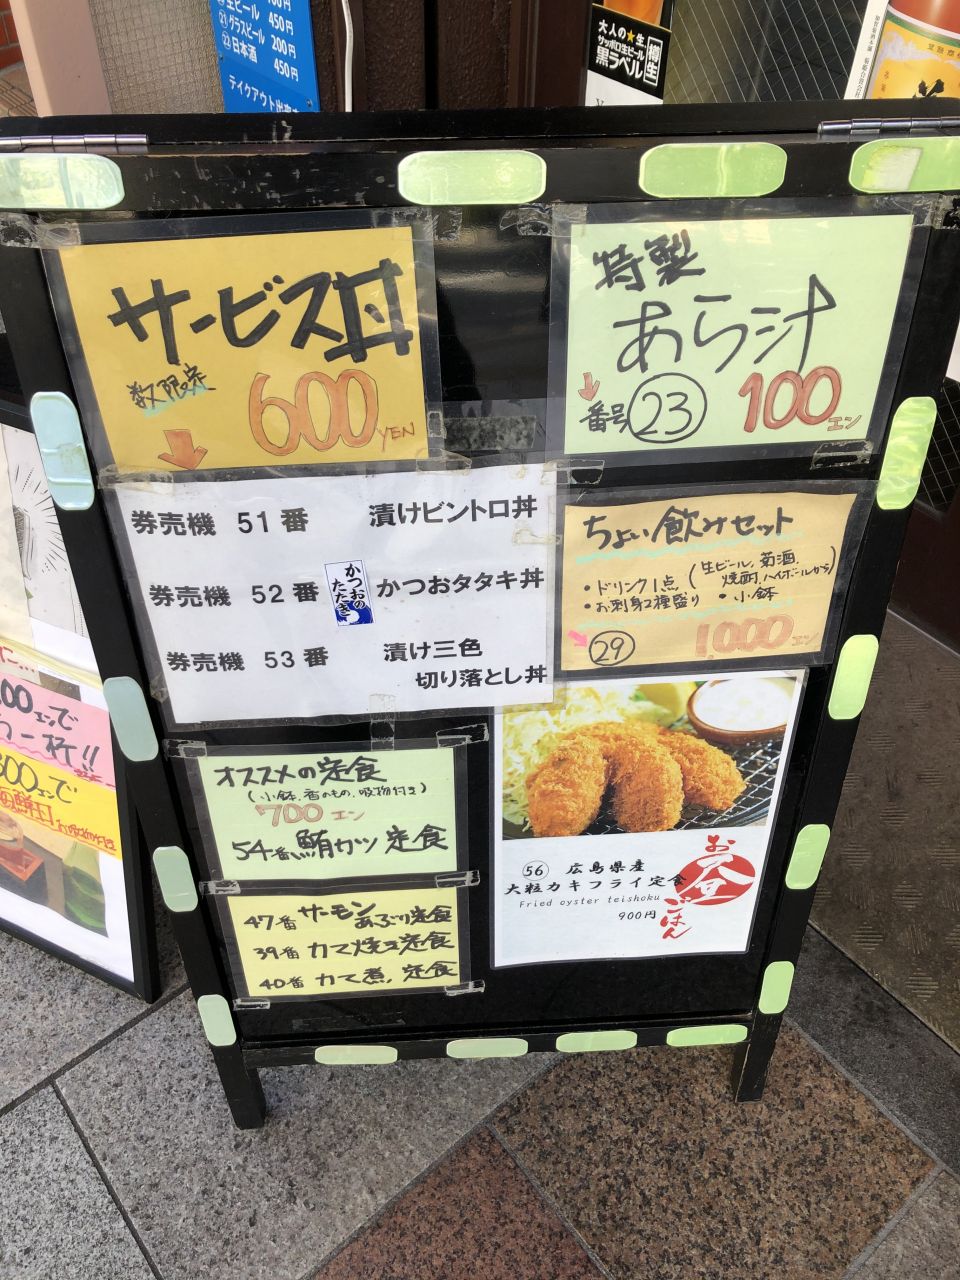 生ビール
450円
㉑グラスビール 200円
㉒日本酒 450円
大人の★生
サッポロ生ビール
黒ラベル
樽生
サービス丼
数限定
600YEN
特製
あら汁
番号 23 100エン
券売機 51番 漬けビントロ丼
券売機 52番 かつおのたたき かつおタタキ丼
券売機 53番 漬け三色
切り落とし丼
ちょい飲みセット
・ドリンク1点(生ビール、菊酒、
焼酎、ハイボールから)
・お刺身2種盛り ・小鉢
29 1,000エン
オススメの定食
(小鉢、香のもの、吸物付き)
700エン
54番 鮪カツ定食
47番 サーモンあぶり定食
39番 カマ焼き定食
40番 カマ煮定食
56 広島県産
大粒カキフライ定食
Fried oyster teishoku
900円
お昼ごはん